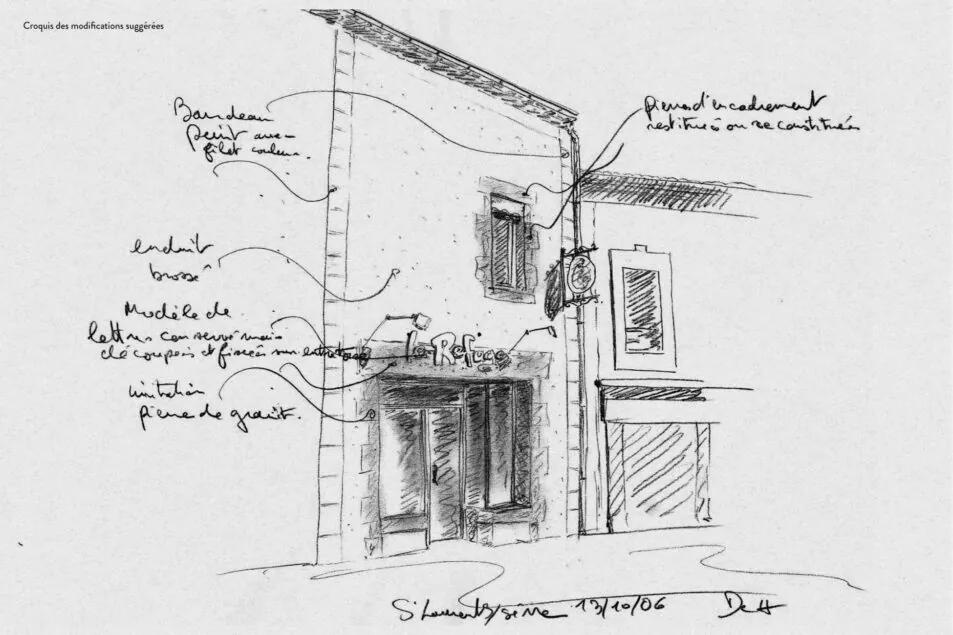 Croquis des modifications suggérées
Bandeau
peint avec
filet couleur.
pierres d'encadrement
restituées ou reconstituées
enduit
brossé
Modèle de
lettres conservé mais
découpées et fixées sur entretoise
Le Refuge
imitation
pierre de granit.
St Laurent s/ sèvre 13/10/06